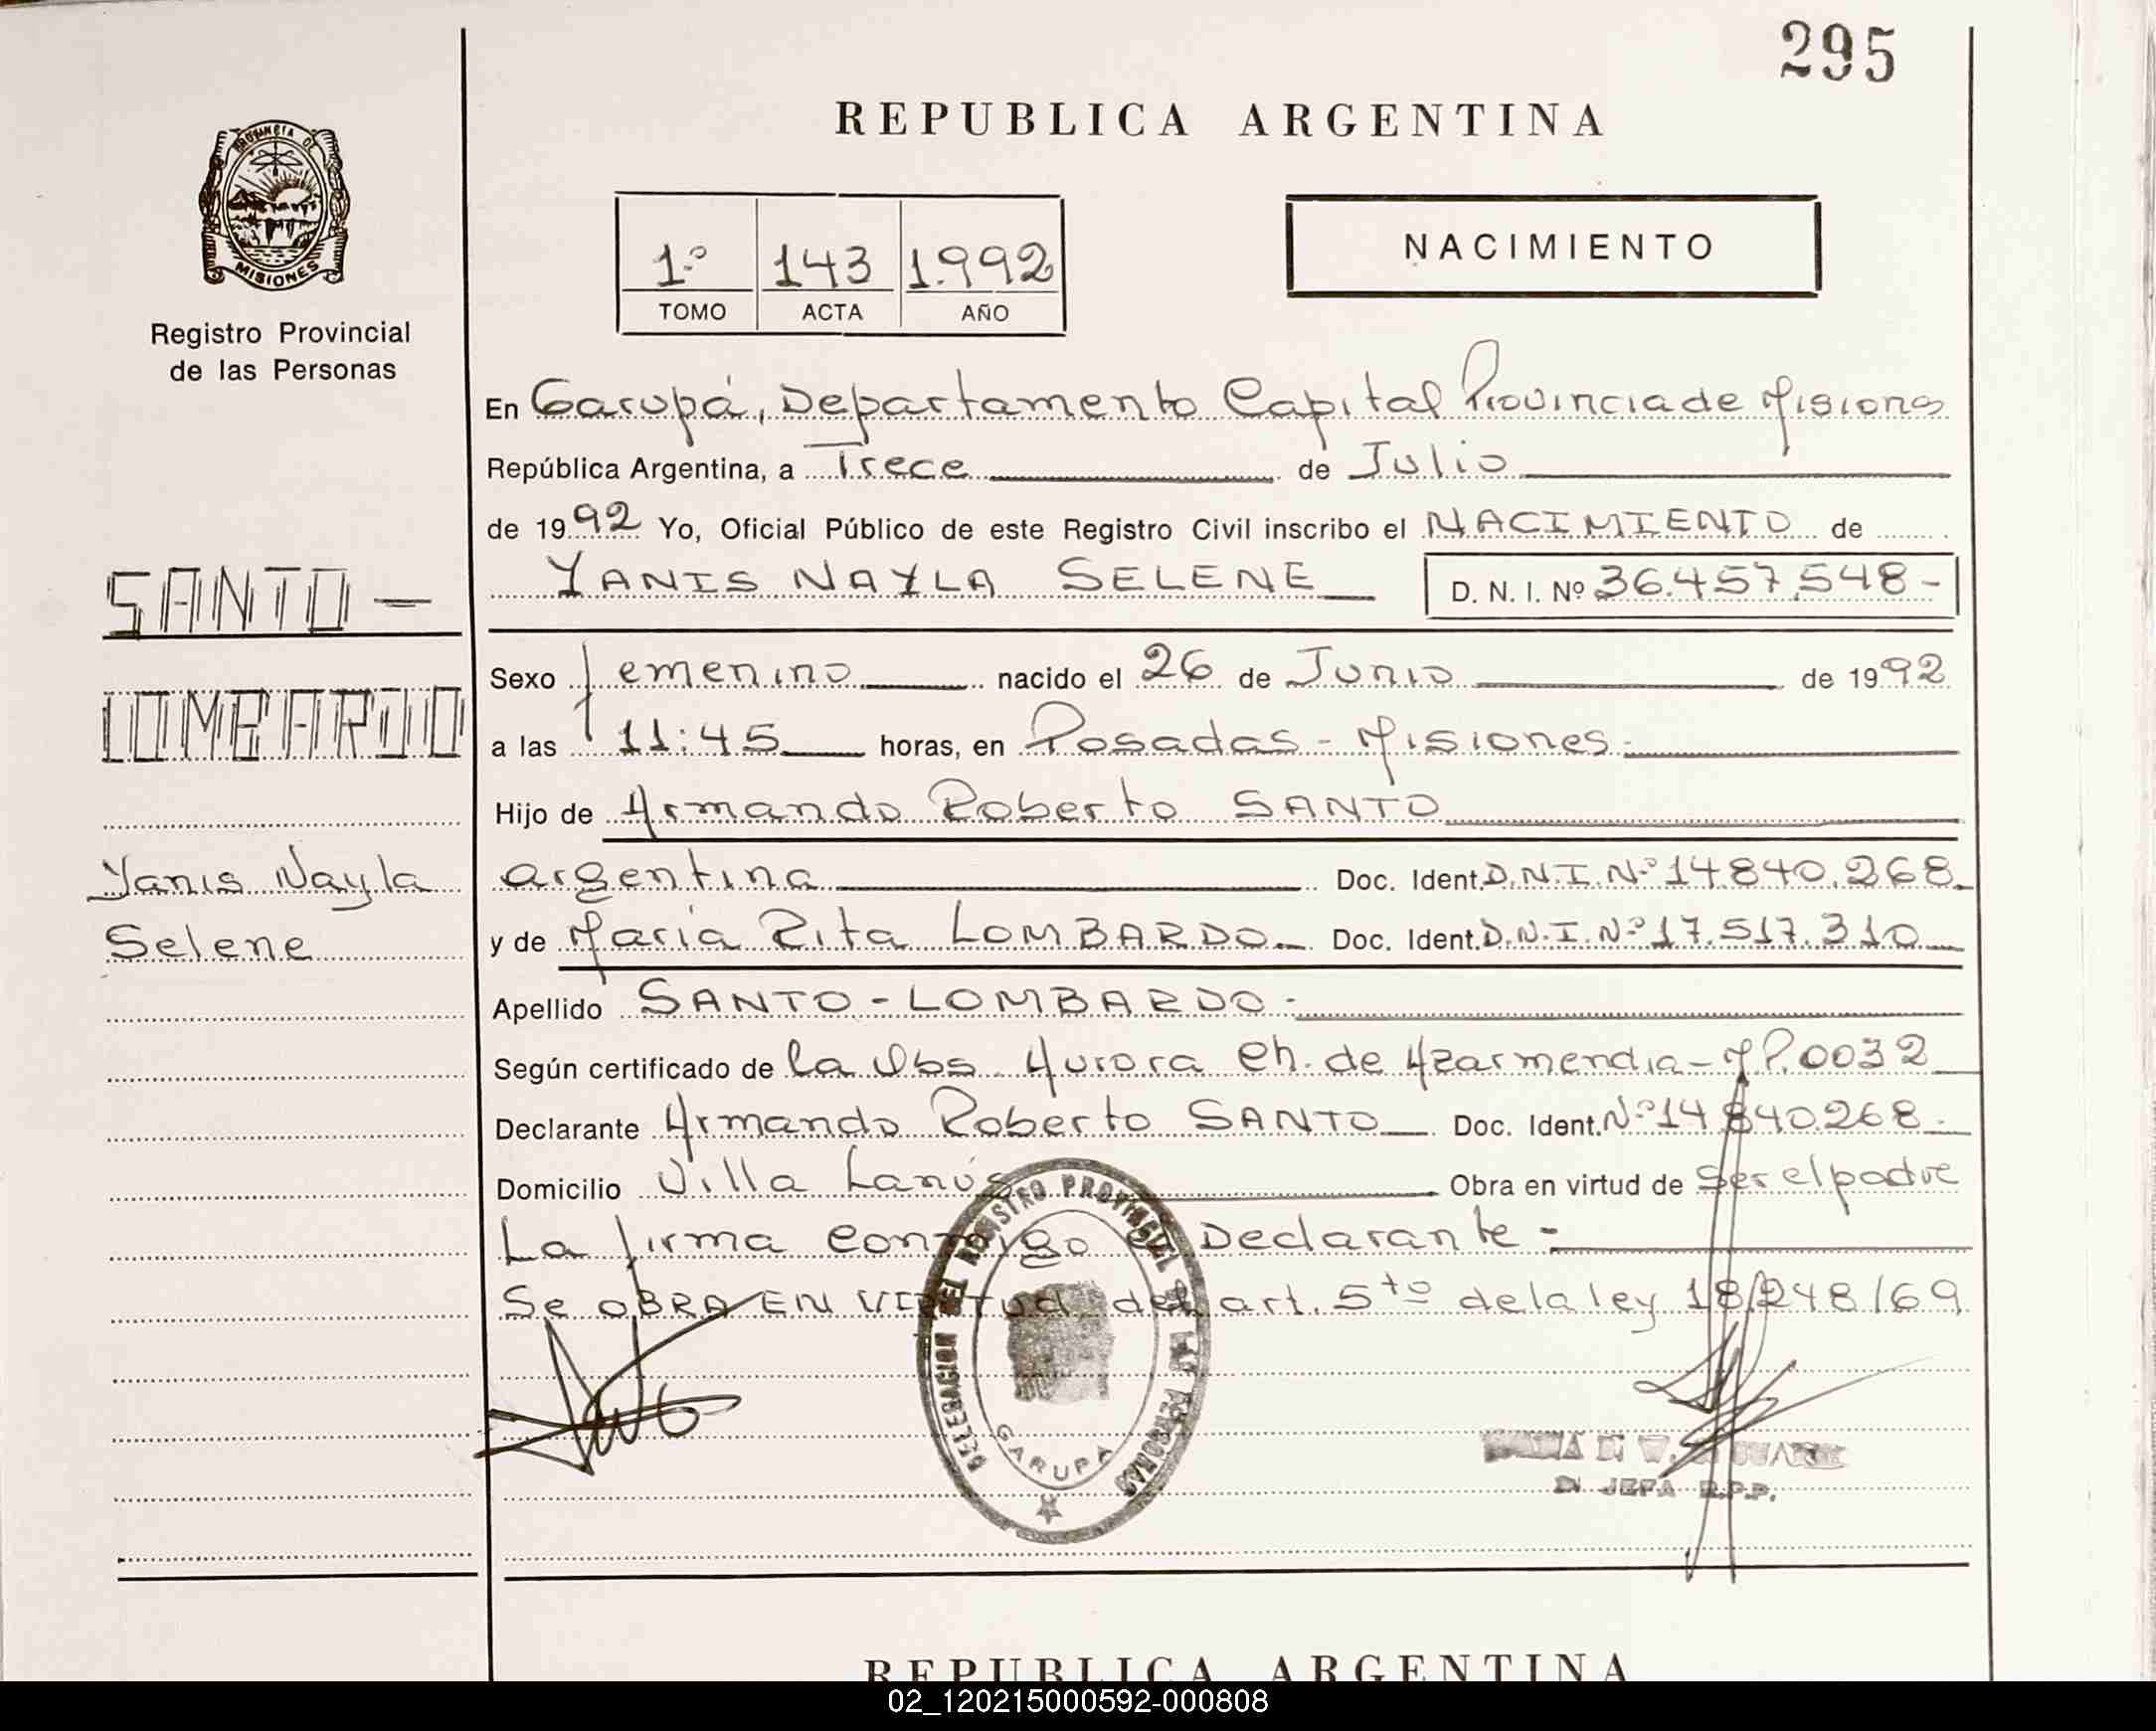 295
REPUBLICA ARGENTINA
PROVINCIA DE
MISIONES
Registro Provincial
de las Personas
1º 143 1.992
TOMO ACTA AÑO
NACIMIENTO
En Garupá, Departamento Capital Provincia de Misiones
República Argentina, a Trece de Julio
de 1992 Yo, Oficial Público de este Registro Civil inscribo el NACIMIENTO de
YANIS NAYLA SELENE D. N. I. Nº 36.457.548-
SANTO-
LOMBARDO
Yanis Nayla
Selene
Sexo femenino nacido el 26 de Junio de 1992
a las 11:45 horas, en Posadas - Misiones.
Hijo de Armando Roberto SANTO
argentina Doc. Ident. D.N.I. Nº 14.840.268
y de María Rita LOMBARDO Doc. Ident. D.N.I. Nº 17.517.310
Apellido SANTO-LOMBARDO-
Según certificado de la Obs. Aurora Ch. de Azarmendia - M.P. 0032
Declarante Armando Roberto SANTO Doc. Ident. Nº 14.840.268-
Domicilio Villa Lanús Obra en virtud de Ser el padre
La firma conmigo Declarante-
Se OBRA EN VIRTUD del art. 5to de la ley 18.248/69
DELEGACION DEL REGISTRO PROVINCIAL DE LAS PERSONAS
GARUPA
JEFA R.P.P.
REPUBLICA ARGENTINA
02_120215000592-000808